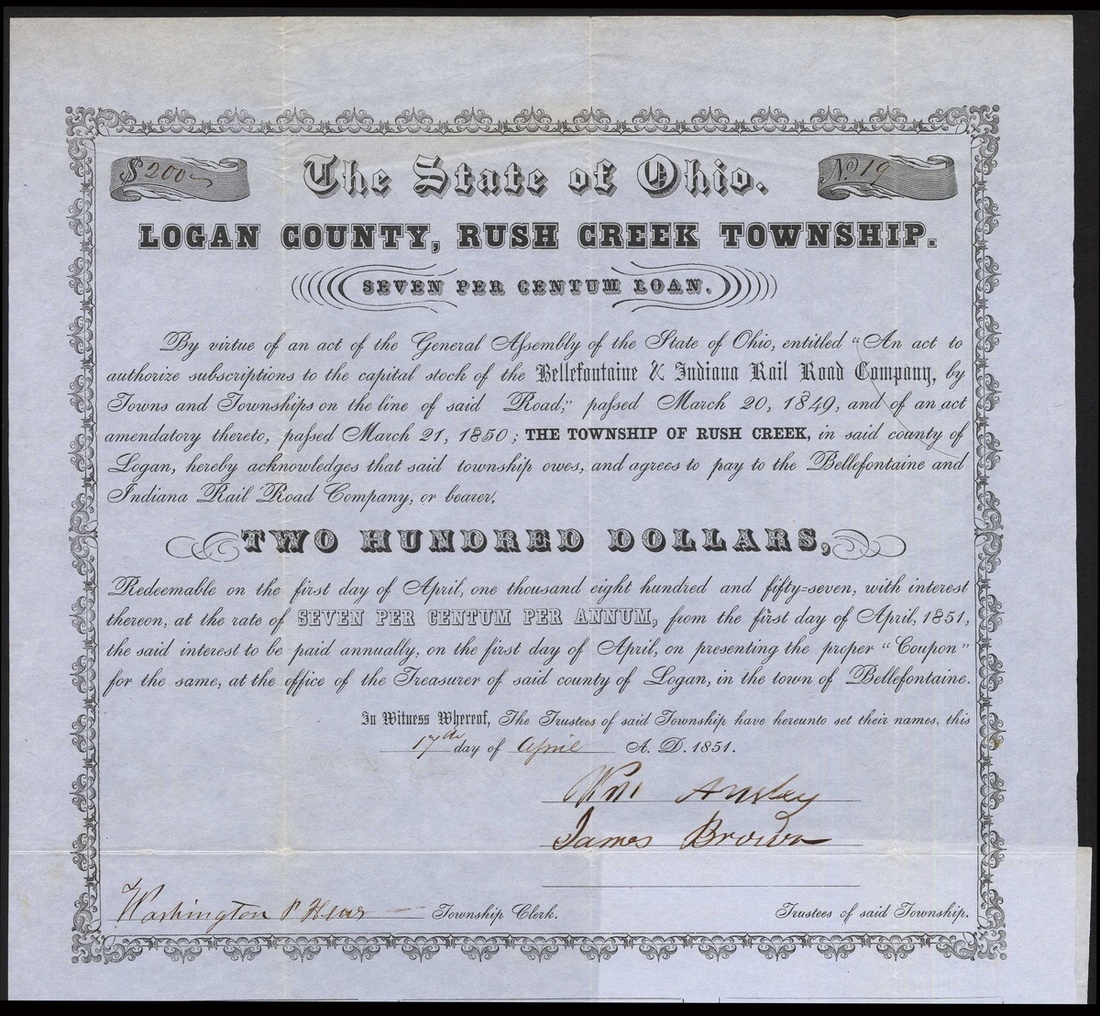 $200 The State of Ohio. No. 19
LOGAN COUNTY, RUSH CREEK TOWNSHIP.
SEVEN PER CENTUM LOAN.
By virtue of an act of the General Assembly of the State of Ohio, entitled "An act to
authorize subscriptions to the capital stock of the Bellefontaine & Indiana Rail Road Company, by
Towns and Townships on the line of said Road," passed March 20, 1849, and of an act
amendatory thereto, passed March 21, 1850; THE TOWNSHIP OF RUSH CREEK, in said county of
Logan, hereby acknowledges that said township owes, and agrees to pay to the Bellefontaine and
Indiana Rail Road Company, or bearer,
TWO HUNDRED DOLLARS,
Redeemable on the first day of April, one thousand eight hundred and fifty-seven, with interest
thereon, at the rate of SEVEN PER CENTUM PER ANNUM, from the first day of April, 1851,
the said interest to be paid annually, on the first day of April, on presenting the proper "Coupon"
for the same, at the office of the Treasurer of said county of Logan, in the town of Bellefontaine.
In Witness Whereof, The Trustees of said Township have hereunto set their names, this
17th day of April A. D. 1851.
Wm
James Brown
Washington Township Clerk. Trustees of said Township.